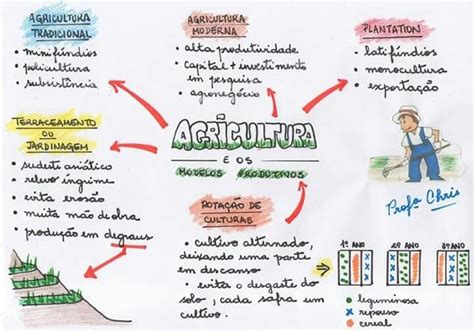 AGRICULTURA
TRADICIONAL
• minifúndios
• policultura
• subsistência
AGRICULTURA
MODERNA
• alta produtividade
• capital + investimento
em pesquisa
• agronegócio
PLANTATION
• latifúndios
• monocultura
• exportação
TERRACEAMENTO
OU
JARDINAGEM
• sudeste asiático
• relevo íngrime
• evita erosão
• muita mão de obra
• produção em degraus
AGRICULTURA
E OS
MODELOS PRODUTIVOS
Profa Chris
ROTAÇÃO DE
CULTURAS
• cultivo alternado,
deixando uma parte
em descanso
• evita o desgaste do
solo, cada safra um
cultivo.
1º ANO 2º ANO 3º ANO
leguminosa
repouso
cereal